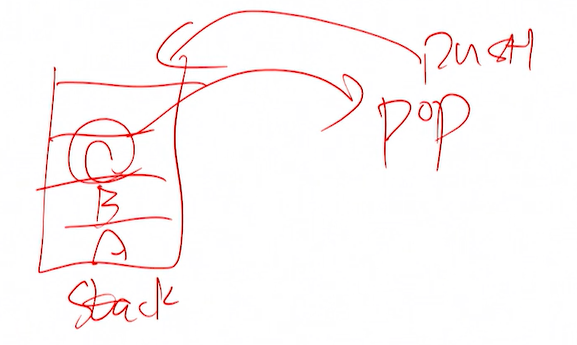 PUSH
POP
C
B
A
Stack